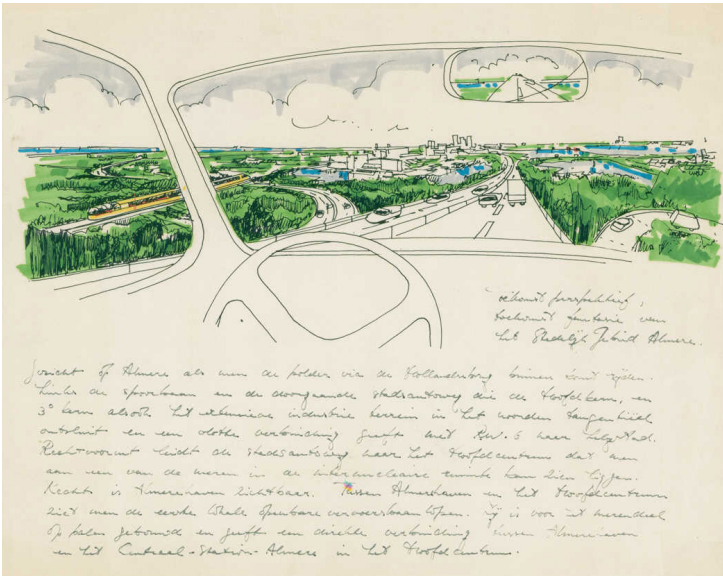 toekomst perspektief,
toekomst fantasie van
het Stedelijk Gebied Almere.
Gezicht op Almere als men de polder via de Hollandsebrug binnen komt rijden.
Links de spoorbaan en de doorgaande stadsautoweg die de Hoofdkern, en
3e kern alsook het extensieve industrie terrein in het noorden tangentieel
ontsluit en een vlotte verbinding geeft met R.W. 6 naar Lelystad.
Rechtvooruit leidt de stadsautoweg naar het Hoofdcentrum dat men
aan een van de meren in de internucleaire ruimte kan zien liggen.
Rechts is Almerehaven zichtbaar. Tussen Almerehaven en het Hoofdcentrum
ziet men de eerste lokale openbare vervoersbaan lopen. Hij is voor het merendeel
op palen gebouwd en geeft een direkte verbinding tussen Almerehaven
en het Centraal-Station-Almere in het Hoofdcentrum.